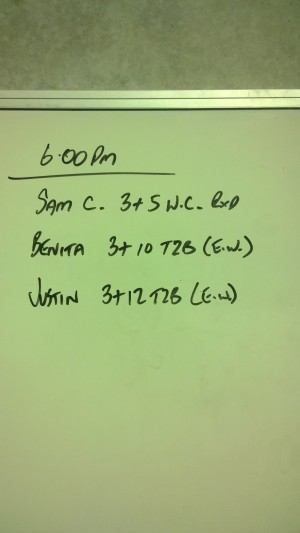 6:00 Pm
SAM C. 3+5 W.C. RxD
BENITA 3+10 T2B (E.W.)
JUSTIN 3+12 T2B (E.W)